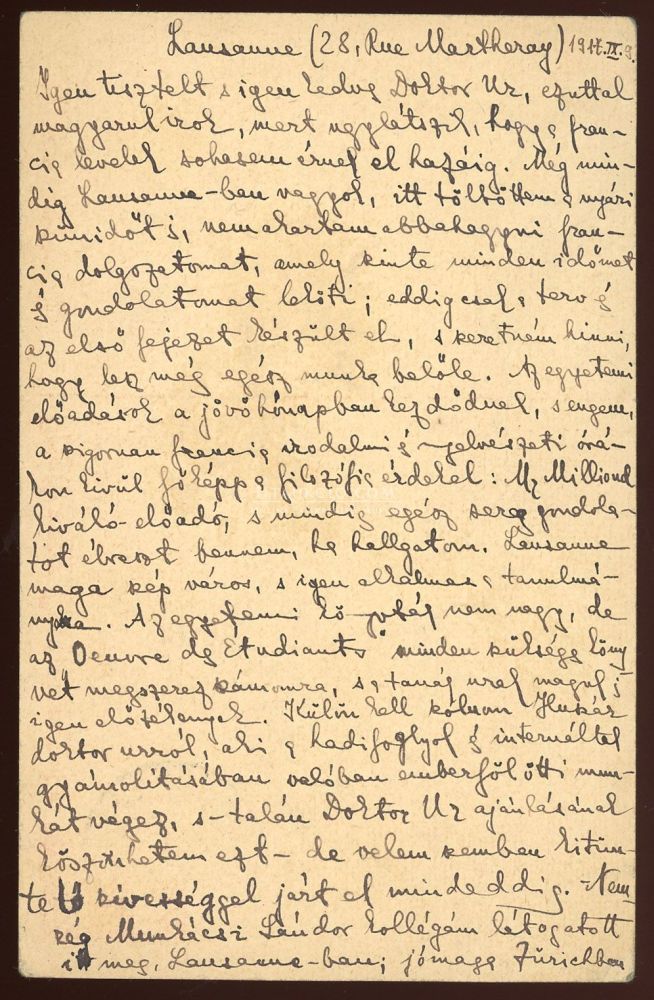 Lausanne (28, Rue Martheray) 1917. IX. 9.
Igen tisztelt s igen kedves Doktor Ur, ezuttal
magyarul irok, mert ugylátszik, hogy a fran-
cia levelek sohasem érnek el hazáig. Még min-
dig Lausanne-ban vagyok, itt töltöttem a nyári
szünidőt is, nem akartam abbahagyni fran-
cia dolgozatomat, amely szinte minden időmet
és gondolatomat leköti; eddig csak a terv és
az első fejezet készült el, s szeretném hinni,
hogy lesz még egész munka belőle. Az egyetemi
előadások a jövő hónapban kezdődnek, s engem,
a szigoruan francia irodalmi és nyelvészeti órá-
kon kivül főképp a filozófia érdekel: Mr Millioud
kiváló előadó, s mindig egész sereg gondola-
tot ébreszt bennem, ha hallgatom. Lausanne
maga szép város, s igen alkalmas a tanulmá-
nyokra. Az egyetemi kö-ytár nem nagy, de
az "Oeuvre des Étudiants" minden szükséges köny
vet megszerez számomra, s a tanár urak maguk is
igen előzékenyek. Külön kell szólnom
doktor urról, aki a hadifoglyok és internáltak
gyámolitásában valóban emberfölötti mun-
kát végez, s - talán Doktor Ur ajánlásának
köszönhetem ezt - de velem szemben kitün-
tető szivességgel járt el mindeddig. - Nem-
rég Munkácsi Sándor kollégám látogatott
itt meg, Lausanne-ban; jómaga Zürichben